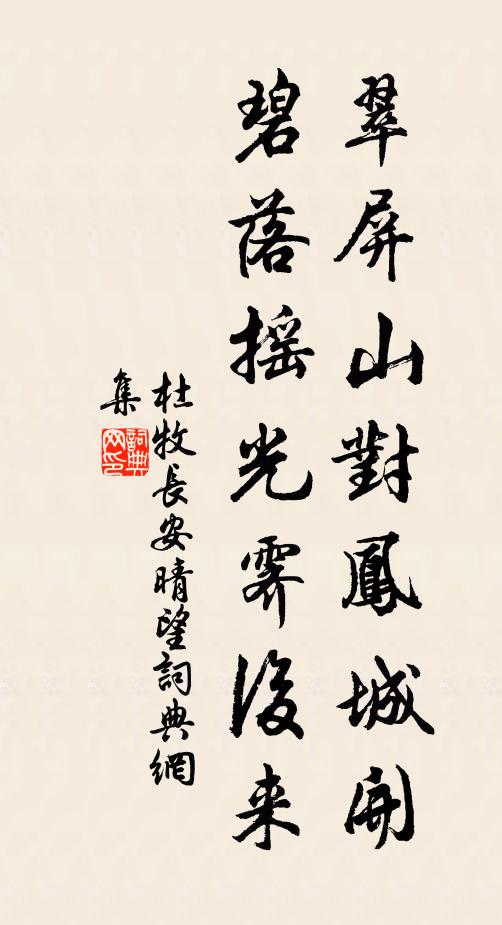 翠屏山對鳳城開
碧落摇光霽後来
杜牧長安晴望詞典網
集
詞典网印